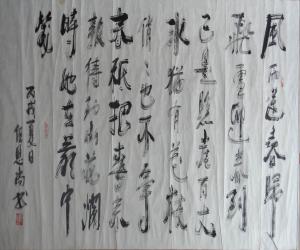 風雨送春歸
飛雪迎春到
已是懸崖百丈
冰猶有花枝
俏俏也不爭
春祇把春來
報待到山花爛
時她在叢中
笑
丙戌夏日
書